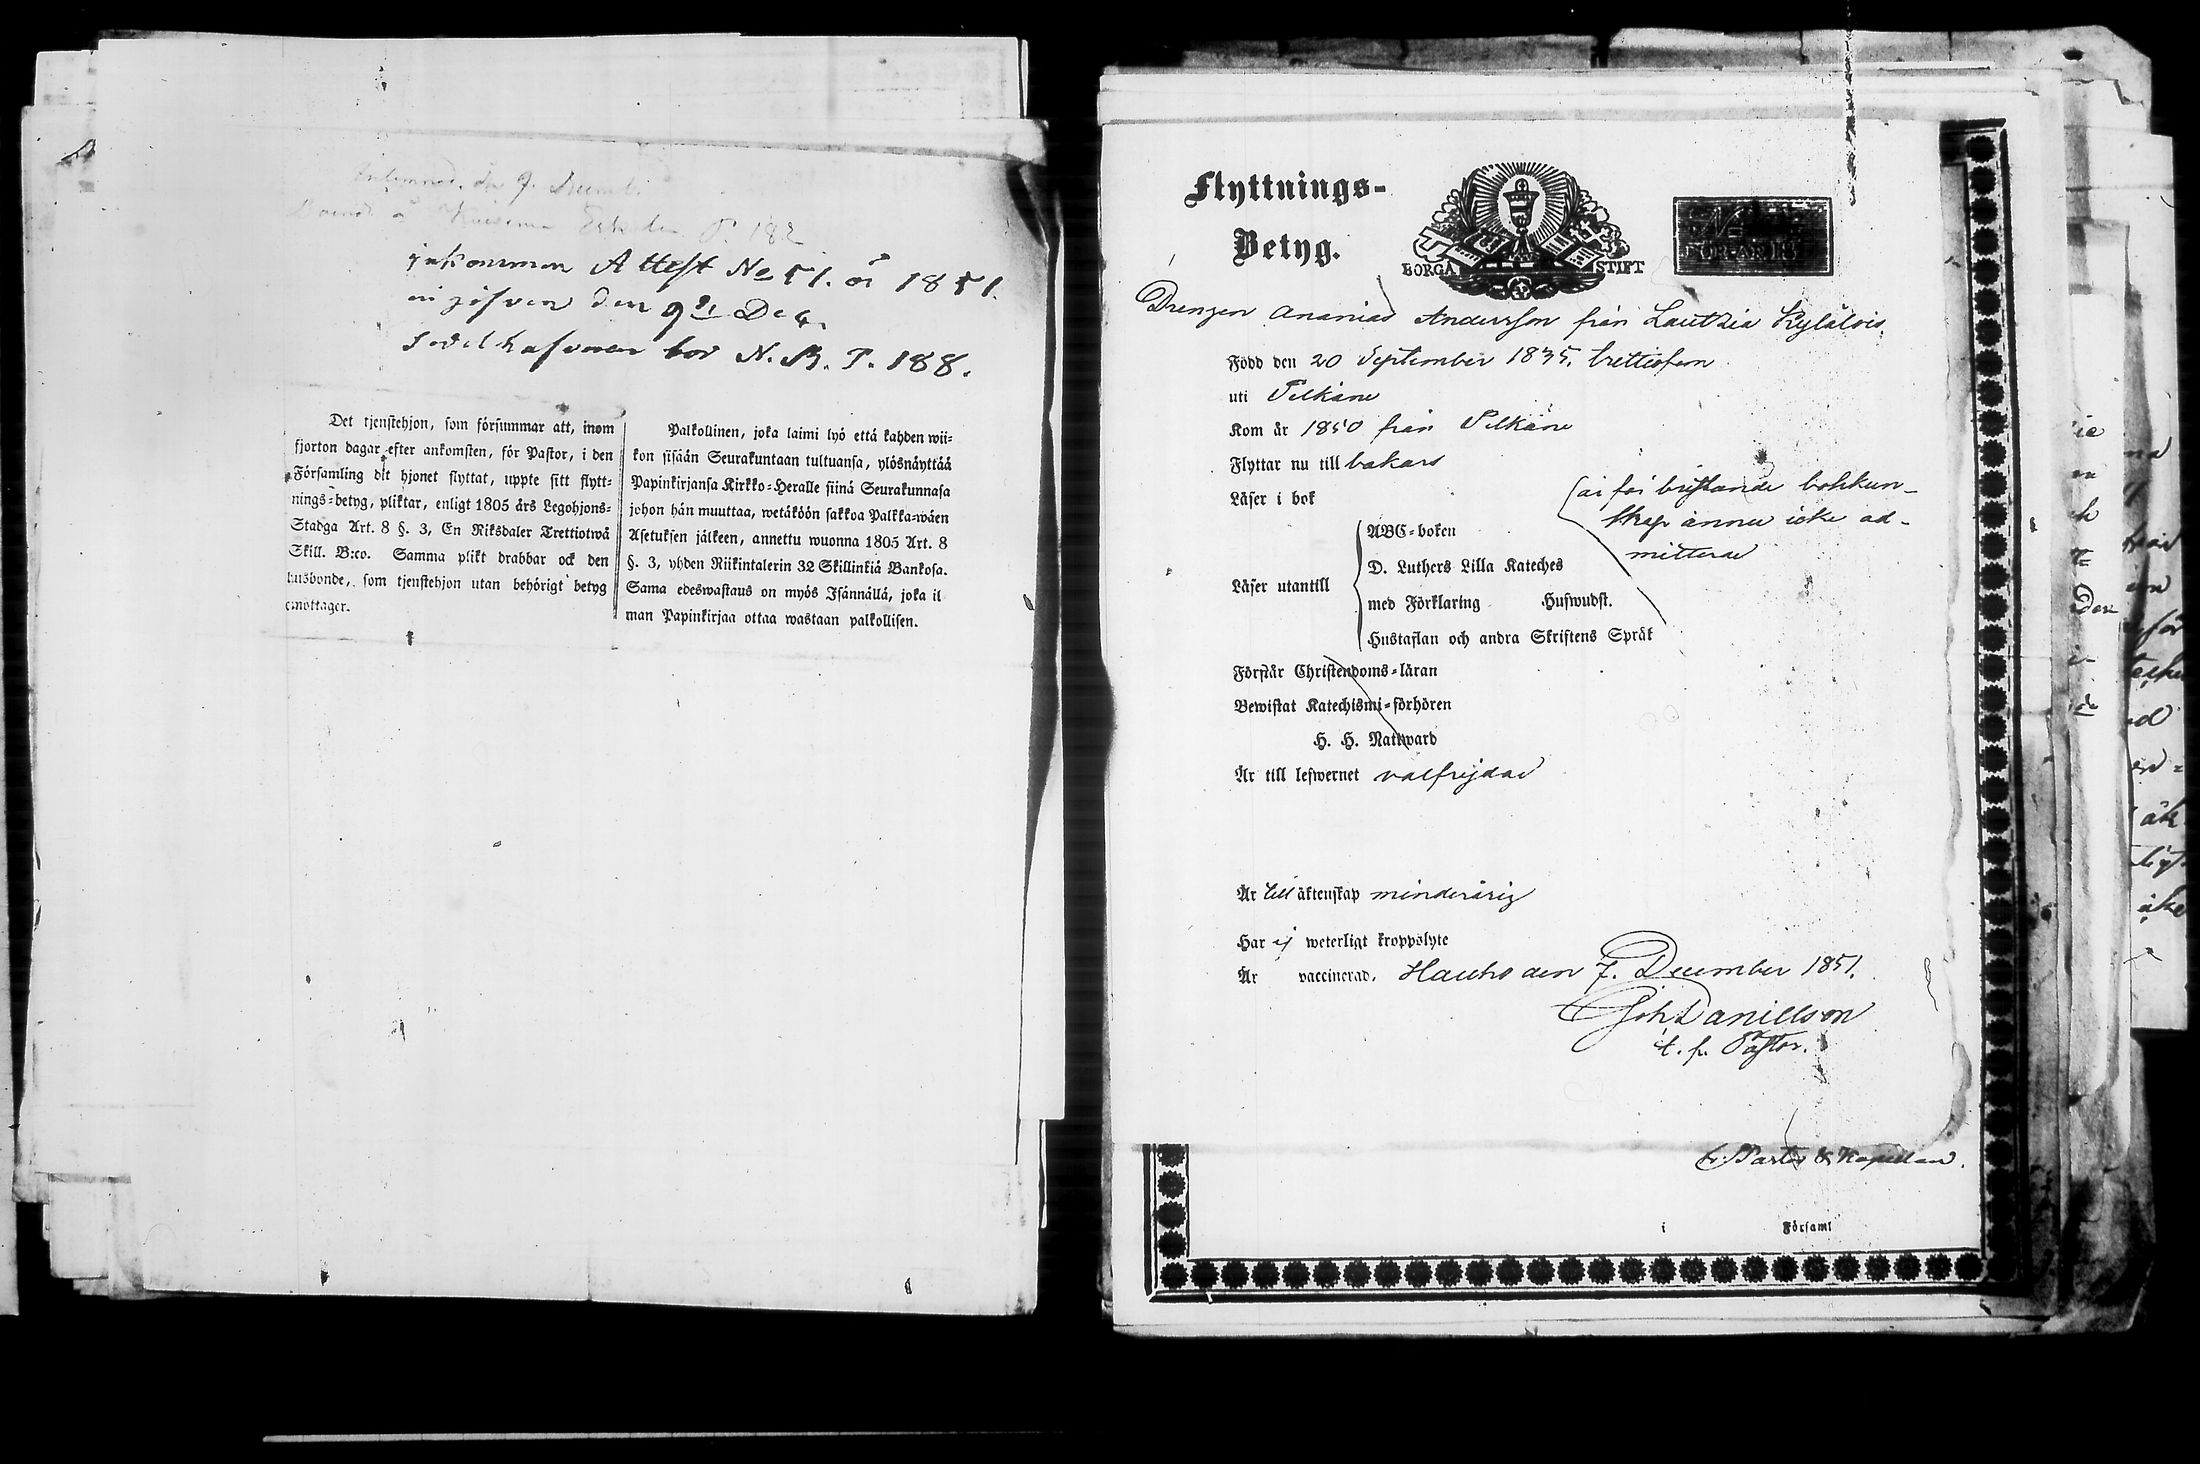 den 9. Decemb.
P. 182
inkommen Attest No 51. år 1851.
in gifven den 9de Dec.
sedelhafvaren bor N. B. P. 188.
Det tjenstehjon, som försummar att, inom
fjorton dagar efter ankomsten, för Pastor, i den
Församling dit hjonet flyttat, uppte sitt flytt-
nings-betyg, pliktar, enligt 1805 års Legohjons-
Stadga Art. 8 §. 3, En Riksdaler Trettiotwå
Skill. B:co. Samma plikt drabbar ock den
husbonde, som tjenstehjon utan behörigt betyg
emottager.
Palkollinen, joka laimi lyö että kahden wii-
kon sisään Seurakuntaan tultuansa, ylösnäyttää
Papinkirjansa Kirkko-Heralle siinä Seurakunnasa
johon hän muuttaa, wetäköön sakkoa Palkka-wäen
Asetuksen jälkeen, annettu wuonna 1805 Art. 8
§. 3, yhden Riikintalerin 32 Skillinkiä Bankosa.
Sama edeswastaus on myös Isännällä, joka il
man Papinkirjaa ottaa wastaan palkollisen.
Flyttnings-
Betyg.
BORGÅ STIFT
FÖR ÅR 18
Drengen Ananias Andersson från Lautsia Kylälois.
Född den 20 September 1835. trettiofem
uti Pelkäne
Kom år 1850 från Pelkäne
Flyttar nu till bakars
Läser i bok
(är för bristande bokkun-
skap ännu icke ad-
mitterad
ABC-boken
D. Luthers Lilla Kateches
Läser utantill
med Förklaring Hufwudst.
Hustaflan och andra Skriftens Språk
Förstår Christendoms-läran
Bewistat Katechismi-förhören
H. H. Nattward
Är till lefwernet välfrejdad
Är till äktenskap minderårig
Har ej weterligt kroppslyte
Är vaccinerad. Hauho den 7. December 1851.
Joh Daniellson
t. f. Pastor.
t. Pastor & Kapellan.
i Församl